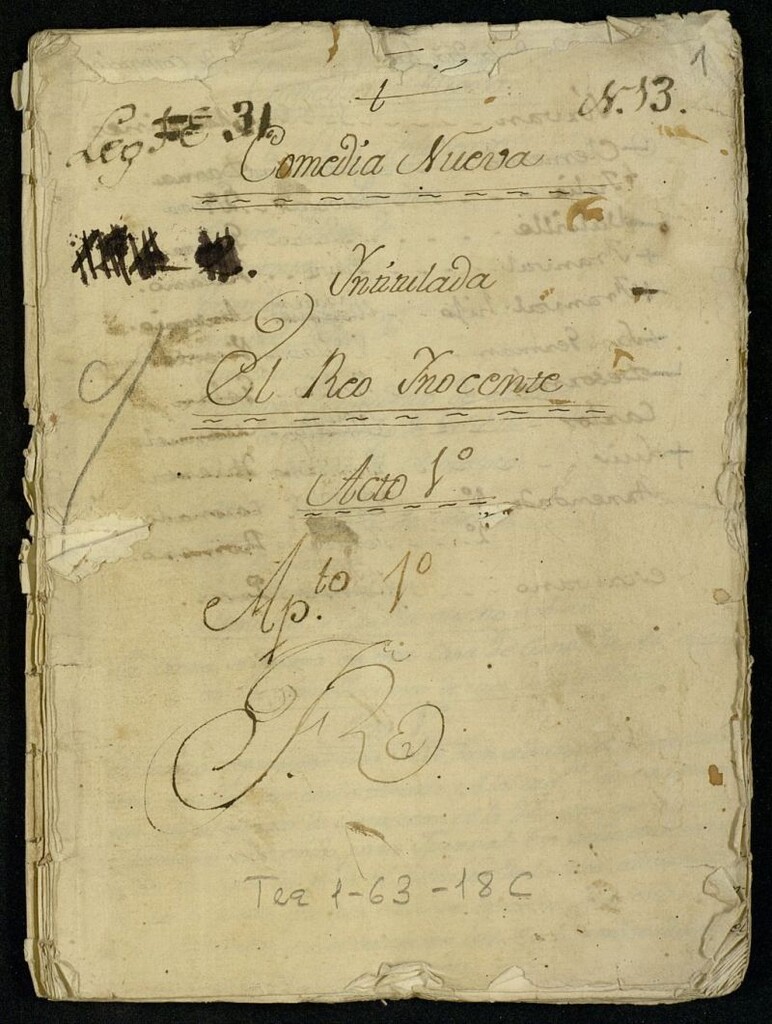 1
N. 13.
Leg 31
Comedia Nueva
Intitulada
El Reo Inocente
Acto 1º
Ap.to 1º
Tea 1-63-18 C